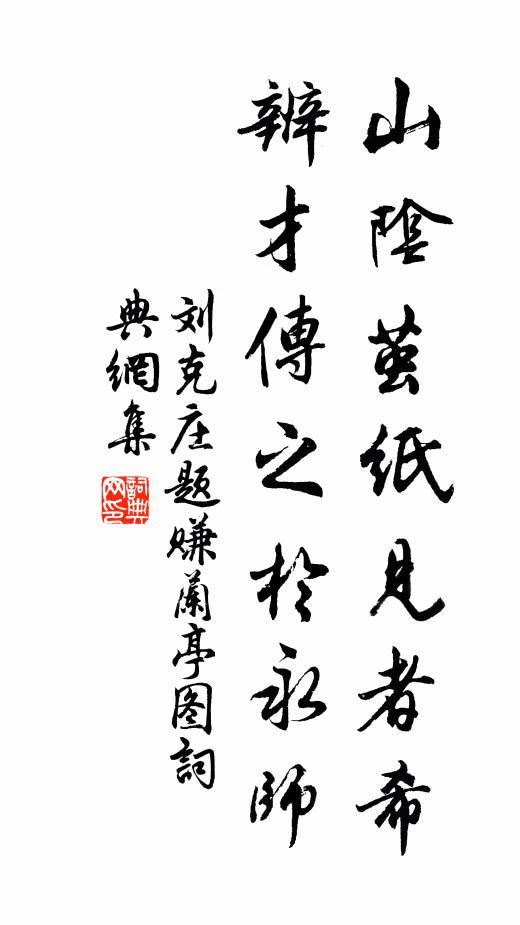 山陰茧纸見者希
辨才傳之於永師
刘克庄题赚蘭亭图詞
典網集
詞典网印